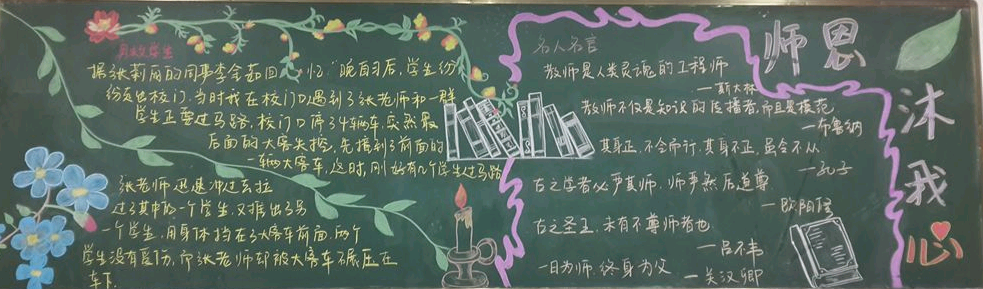 舍救学生
据张莉丽的同事李会茹回忆：“晚自习后，学生纷
纷走出校门，当时我在校门口遇到了张老师和一群
学生正要过马路，校门口停了4辆车，突然最
后面的大客失控，先撞到了前面的
一辆大客车，这时，刚好有几个学生过马路
张老师迅速冲过去拉
过了其中的一个学生，又推出了另
一个学生，用身体挡在了大客车前面，两个
学生没有受伤，而张老师却被大客车碾压在
车下.
名人名言
教师是人类灵魂的工程师
—斯大林
教师不仅是知识的传播者，而且是模范
—布鲁纳
其身正，不令而行，其身不正，虽令不从
—孔子
古之学者必严其师，师严然后道尊
—欧阳修
古之圣王，未有不尊师者也
—吕不韦
一日为师，终身为父
—关汉卿
师恩
沐我心